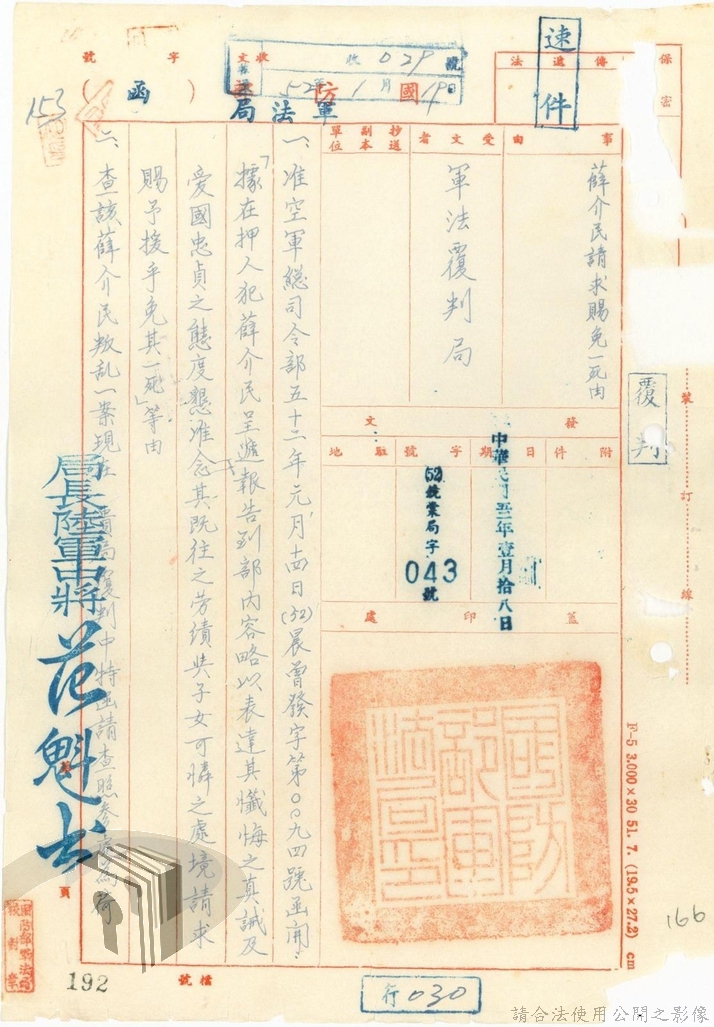 保密
傳遞法
速件
收文 收029號
52年1月19日
國防
軍法局
(函)
字號
153
事由
薛介民請求賜免一死由
受文者
軍法覆判局
抄送副本單位
發文
附件
日期
字號
駐地
中華民國五十二年壹月拾八日
(52)
業局字
043號
蓋印處
國防部軍法局印
覆判
裝訂線
一、准空軍總司令部五十二年元月十四日(52)晨曾發字第〇〇九四號函開:
「據在押人犯薛介民呈遞報告到部內容略以表達其懺悔之真誠及
愛國忠貞之態度懇准念其既往之勞績與子女可憐之處境請求
賜予援手免其一死」等由
二、查該薛介民叛乱一案現在貴局覆判中特函請查照參考為荷
局長陸軍中將
范魁書
F-5 3.000×30 51. 7. (19.5×27.2) cm
166
頁
192
檔號
行030
請合法使用公開之影像